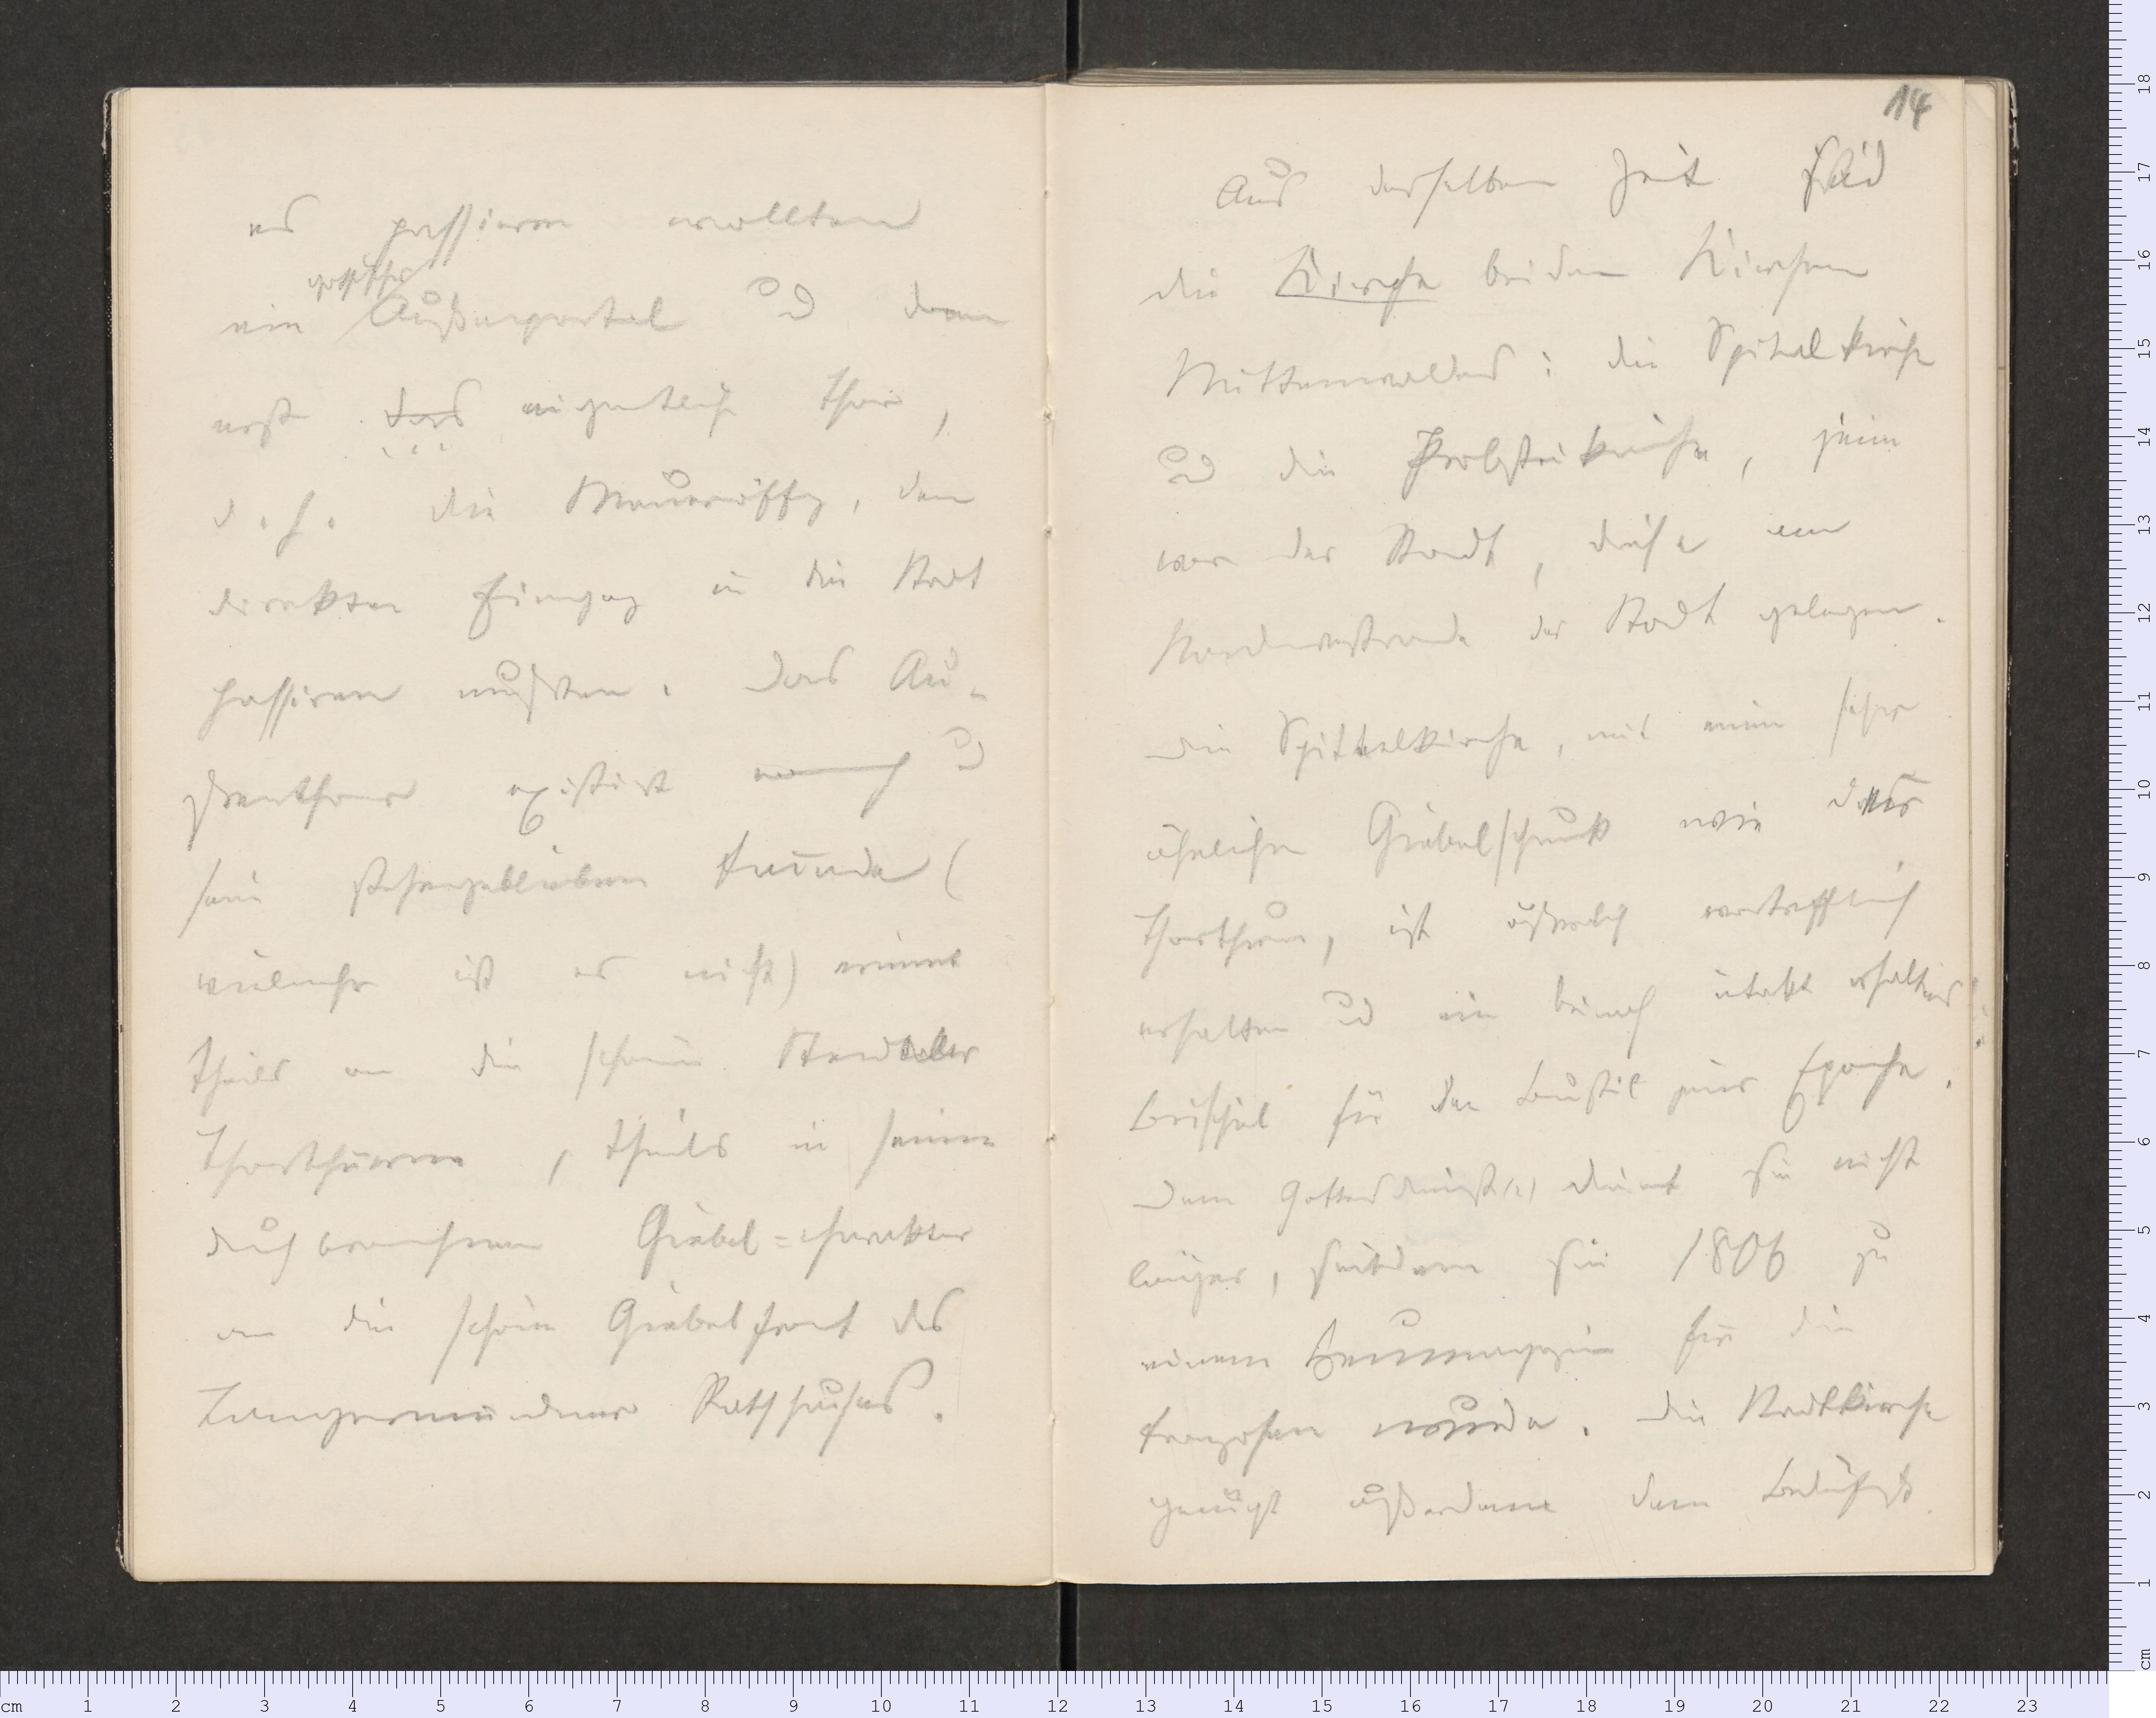 es passiren wollten
gothisches
ein Außenportal und dann
erst das eigentliche Thor,
d. h. die Maueröffng, den
direkten Eingang in die Stadt
passiren mußten. Das Au-
ßenthor existirt noch und
sein stehengebliebener
vielmehr ist es nicht) erinnert
theils an die schönen Stendaller
Thorthürme, theils in seinem
durchbrochenen Giebel=charakter
an die schöne Giebelfront des
Tangermündener Rathhauses.
14
Aus derselben Zeit sind
die Kirche beiden Kirchen
Mittenwaldes: die Spitalkirche
und die Probsteikirche, jene
vor der Stadt, diese am
Nordwestrande der Stadt gelegen.
Die Spittelkirche, mit einem sehr
ähnlichen Giebelschmuck wie der
Thorthurm, ist äußerlich vortrefflich
erhalten und ein beinah intakt erhaltnes
Beispiel für den Baustil jener Epoche.
Dem Gottesdienst(e) dient sie nicht
länger, seitdem sie 1806 zu
einem Heumagazin für die
Franzosen wurde. Die Stadtkirche
genügt außerdem dem Bedürfniß.